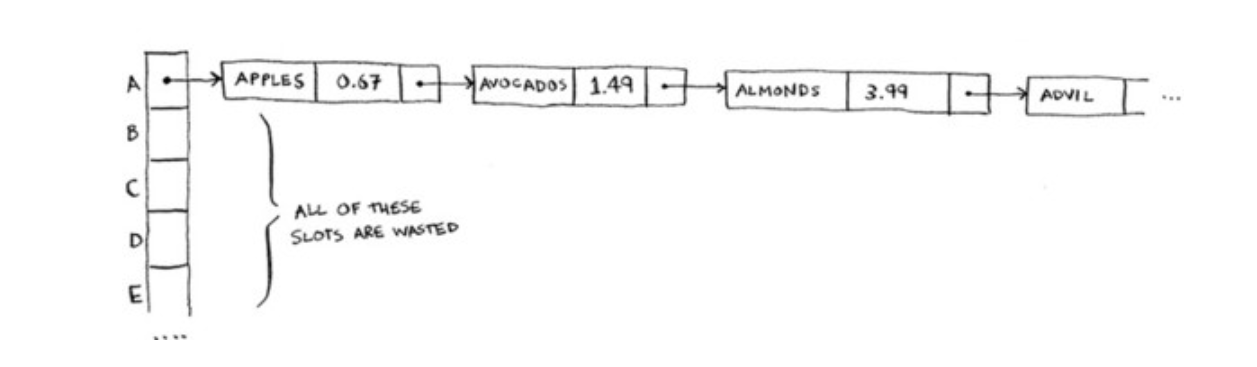 A
APPLES 0.67 AVOCADOS 1.49 ALMONDS 3.99 ADVIL ...
B
C
D
E
....
ALL OF THESE
SLOTS ARE WASTED